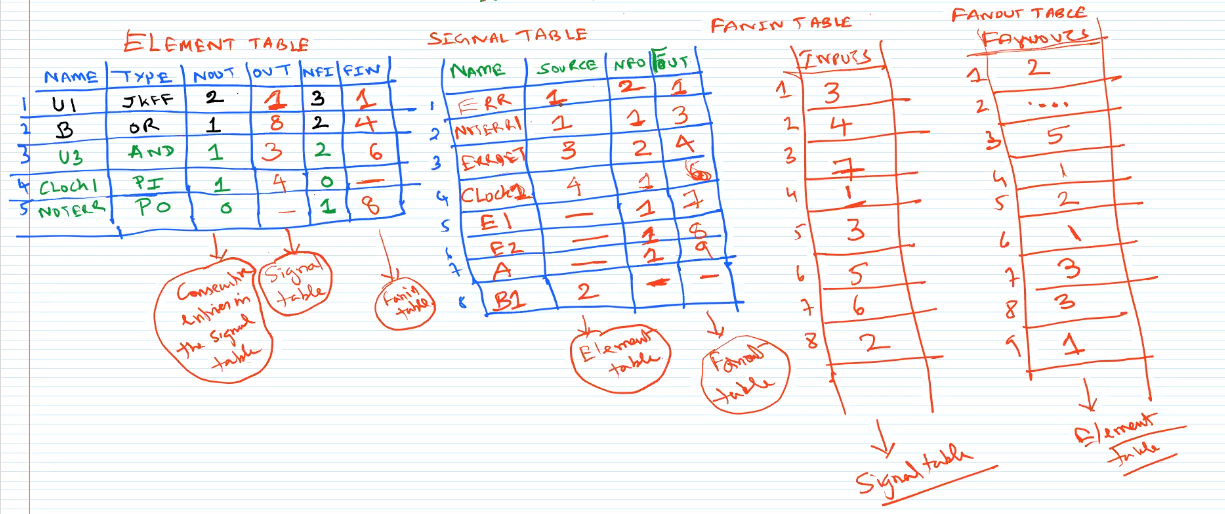 ELEMENT TABLE
NAME TYPE NOUT OUT NFI FIN
1 U1 JKFF 2 1 3 1
2 B OR 1 8 2 4
3 U3 AND 1 3 2 6
4 CLOCK1 PI 1 4 0 —
5 NOTERR PO 0 — 1 8
Consecutive
entries in
the signal
table
Signal
table
Fanin
table
SIGNAL TABLE
NAME SOURCE NFO FOUT
1 ERR 1 2 1
2 NOTERR1 1 1 3
3 ERRDET 3 2 4
4 CLOCK1 4 1 6
5 E1 — 1 7
6 E2 — 1 8
7 A — 1 9
8 B1 2 — —
Element
table
Fanout
table
FANIN TABLE
INPUTS
1 3
2 4
3 7
4 1
5 3
6 5
7 6
8 2
Signal table
FANOUT TABLE
FANOUTS
1 2
2 ....
3 5
4 1
5 2
6 1
7 3
8 3
9 1
Element
table